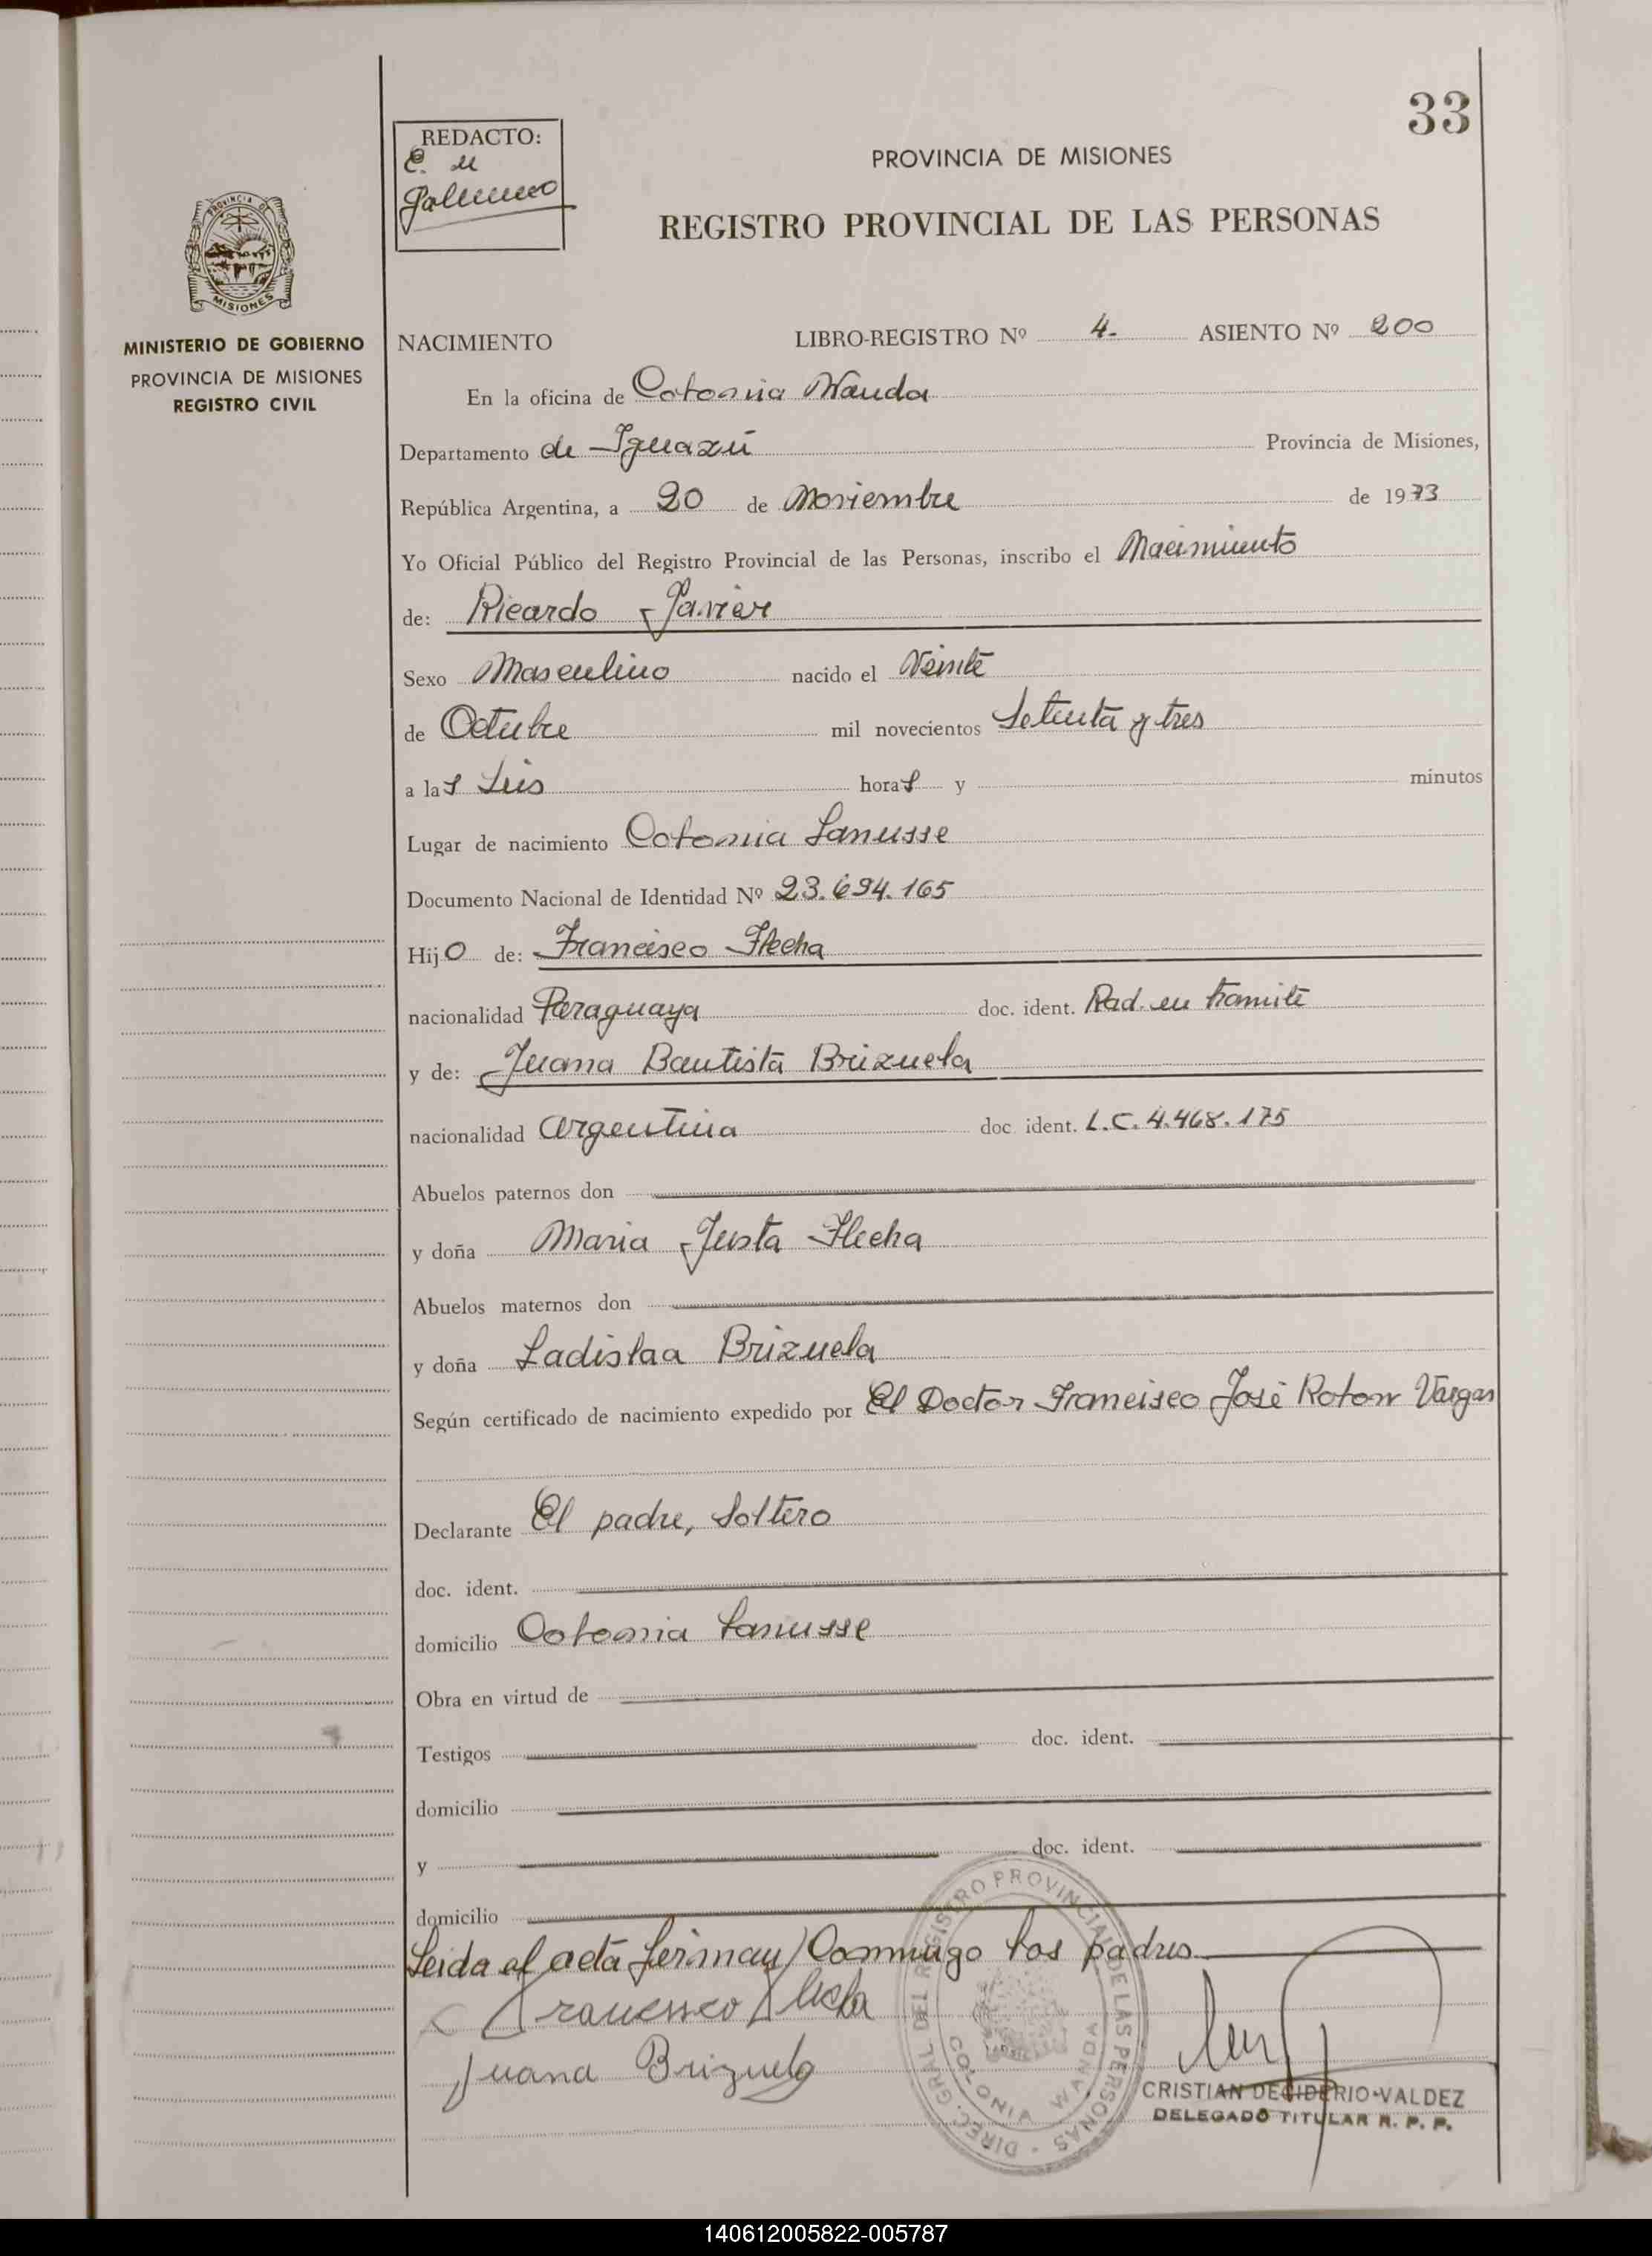 33
REDACTO:
E. de
Galeano
PROVINCIA DE MISIONES
REGISTRO PROVINCIAL DE LAS PERSONAS
PROVINCIA DE
MISIONES
MINISTERIO DE GOBIERNO
PROVINCIA DE MISIONES
REGISTRO CIVIL
NACIMIENTO LIBRO-REGISTRO Nº 4.- ASIENTO Nº 200
En la oficina de Colonia Wanda
Departamento de Iguazú Provincia de Misiones,
República Argentina, a 20 de Noviembre de 1973
Yo Oficial Público del Registro Provincial de las Personas, inscribo el Nacimiento
de: Ricardo Javier
Sexo Masculino nacido el Veinte
de Octubre mil novecientos Setenta y tres
a las Seis horas y minutos
Lugar de nacimiento Colonia Lanusse
Documento Nacional de Identidad Nº 23.694.165
Hijo de: Francisco Flecha
nacionalidad Paraguaya doc. ident. Rad. en tramite
y de: Juana Bautista Brizuela
nacionalidad argentina doc. ident. L.C. 4.468.175
Abuelos paternos don
y doña Maria Justa Flecha
Abuelos maternos don
y doña Ladislaa Brizuela
Según certificado de nacimiento expedido por El Doctor Francisco José Vargas
Declarante El padre, Soltero
doc. ident.
domicilio Colonia Lanusse
Obra en virtud de
Testigos doc. ident.
domicilio
y doc. ident.
domicilio
Leida el acta firman Conmigo los padres
Francisco Flecha
Juana Brizuela
DIREC. GRAL DEL REGISTRO PROVINCIAL DE LAS PERSONAS
COLONIA WANDA
CRISTIAN DECIDERIO VALDEZ
DELEGADO TITULAR R. P. P.
140612005822-005787